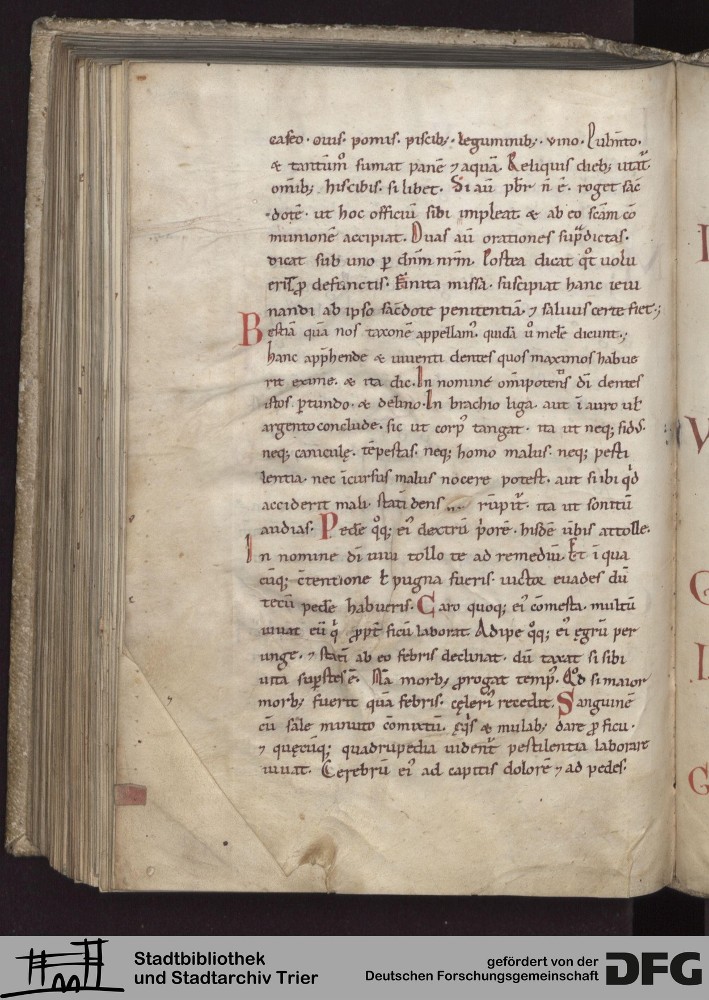 caseo· ouis· pomis· piscib; leguminib; uino·
& tantūm̊ sumat panē ⁊ aquā· Reliquis dieb; utat᷑
om̄ib; his cibis· si libet· Si aū p̄br n̄ ē· roget sac̄
dotē· ut hoc officiū sibi impleat & ab eo sc̄am cō
munionē accipiat· Duas aū orationes sup̄dictas·
dicat sub uno p̱ dn̄m nr̄m· Postea dicat
eris p̱ defunctis· Finita missa· suscipiat hanc ieiu
nandi ab ipso sac̄dote penitentiā· ⁊ saluus certe fiet·;
Bestiā quā nos taxonē appellam᷒· quidā u̇ mele dicunt·;
hanc app̄hende & uiuenti dentes quos maximos habue
rit exime· & ita dic· In nomine om̄ipotent̄s dī dentes
istos p̱tundo· & deb
In brachio liga· aut ī auro ul̄
argento conclude· sic ut corp᷒ tangat· ita ut neq; sid᷒·
neq; canicule̜· tēpestas· neq; homo malus· neq; pesti
lentia· nec īcursus malus nocere potest· aut si ibi qͥd
acciderit mali· statī dens rūpit᷑· ita ut sonitū
audias· Pedē qͦq; ei᷒ dextrū p̄ore· hisdē ūbis attolle·
In nomine dī uiui tollo te ad remediū· Et ī qua
cūq; c̄tentione ł pugna fueris· uictor euades dū
tecū pedē habueris· Caro quoq; ei᷒ cōmesta· multū
iuuat eū qͥ p̱pt̄ ficū laborat· Adipe qͦq; ei᷒ e̜grū per
unge· ⁊ statī ab eo febris declinat· dū taxat si sibi
uita sup̄stes ē· Nā morb; p̱rogat temp᷒· Qͦd si maior
morb; fuerit quā febris· ce̜leri᷒ recedit· Sanguinē
cū sale minuto cōmixtū· e̜qͥs & mulab; dare p̱ ficu·
⁊ que̜cūq; quadrupedia uident᷑ pestilentia laborare
iuuat· Cerebrū ei᷒ ad capitis dolorē ⁊ ad pedes·
Stadtbibliothek
und Stadtarchiv Trier
gefördert von der
Deutschen Forschungsgemeinschaft
DFG